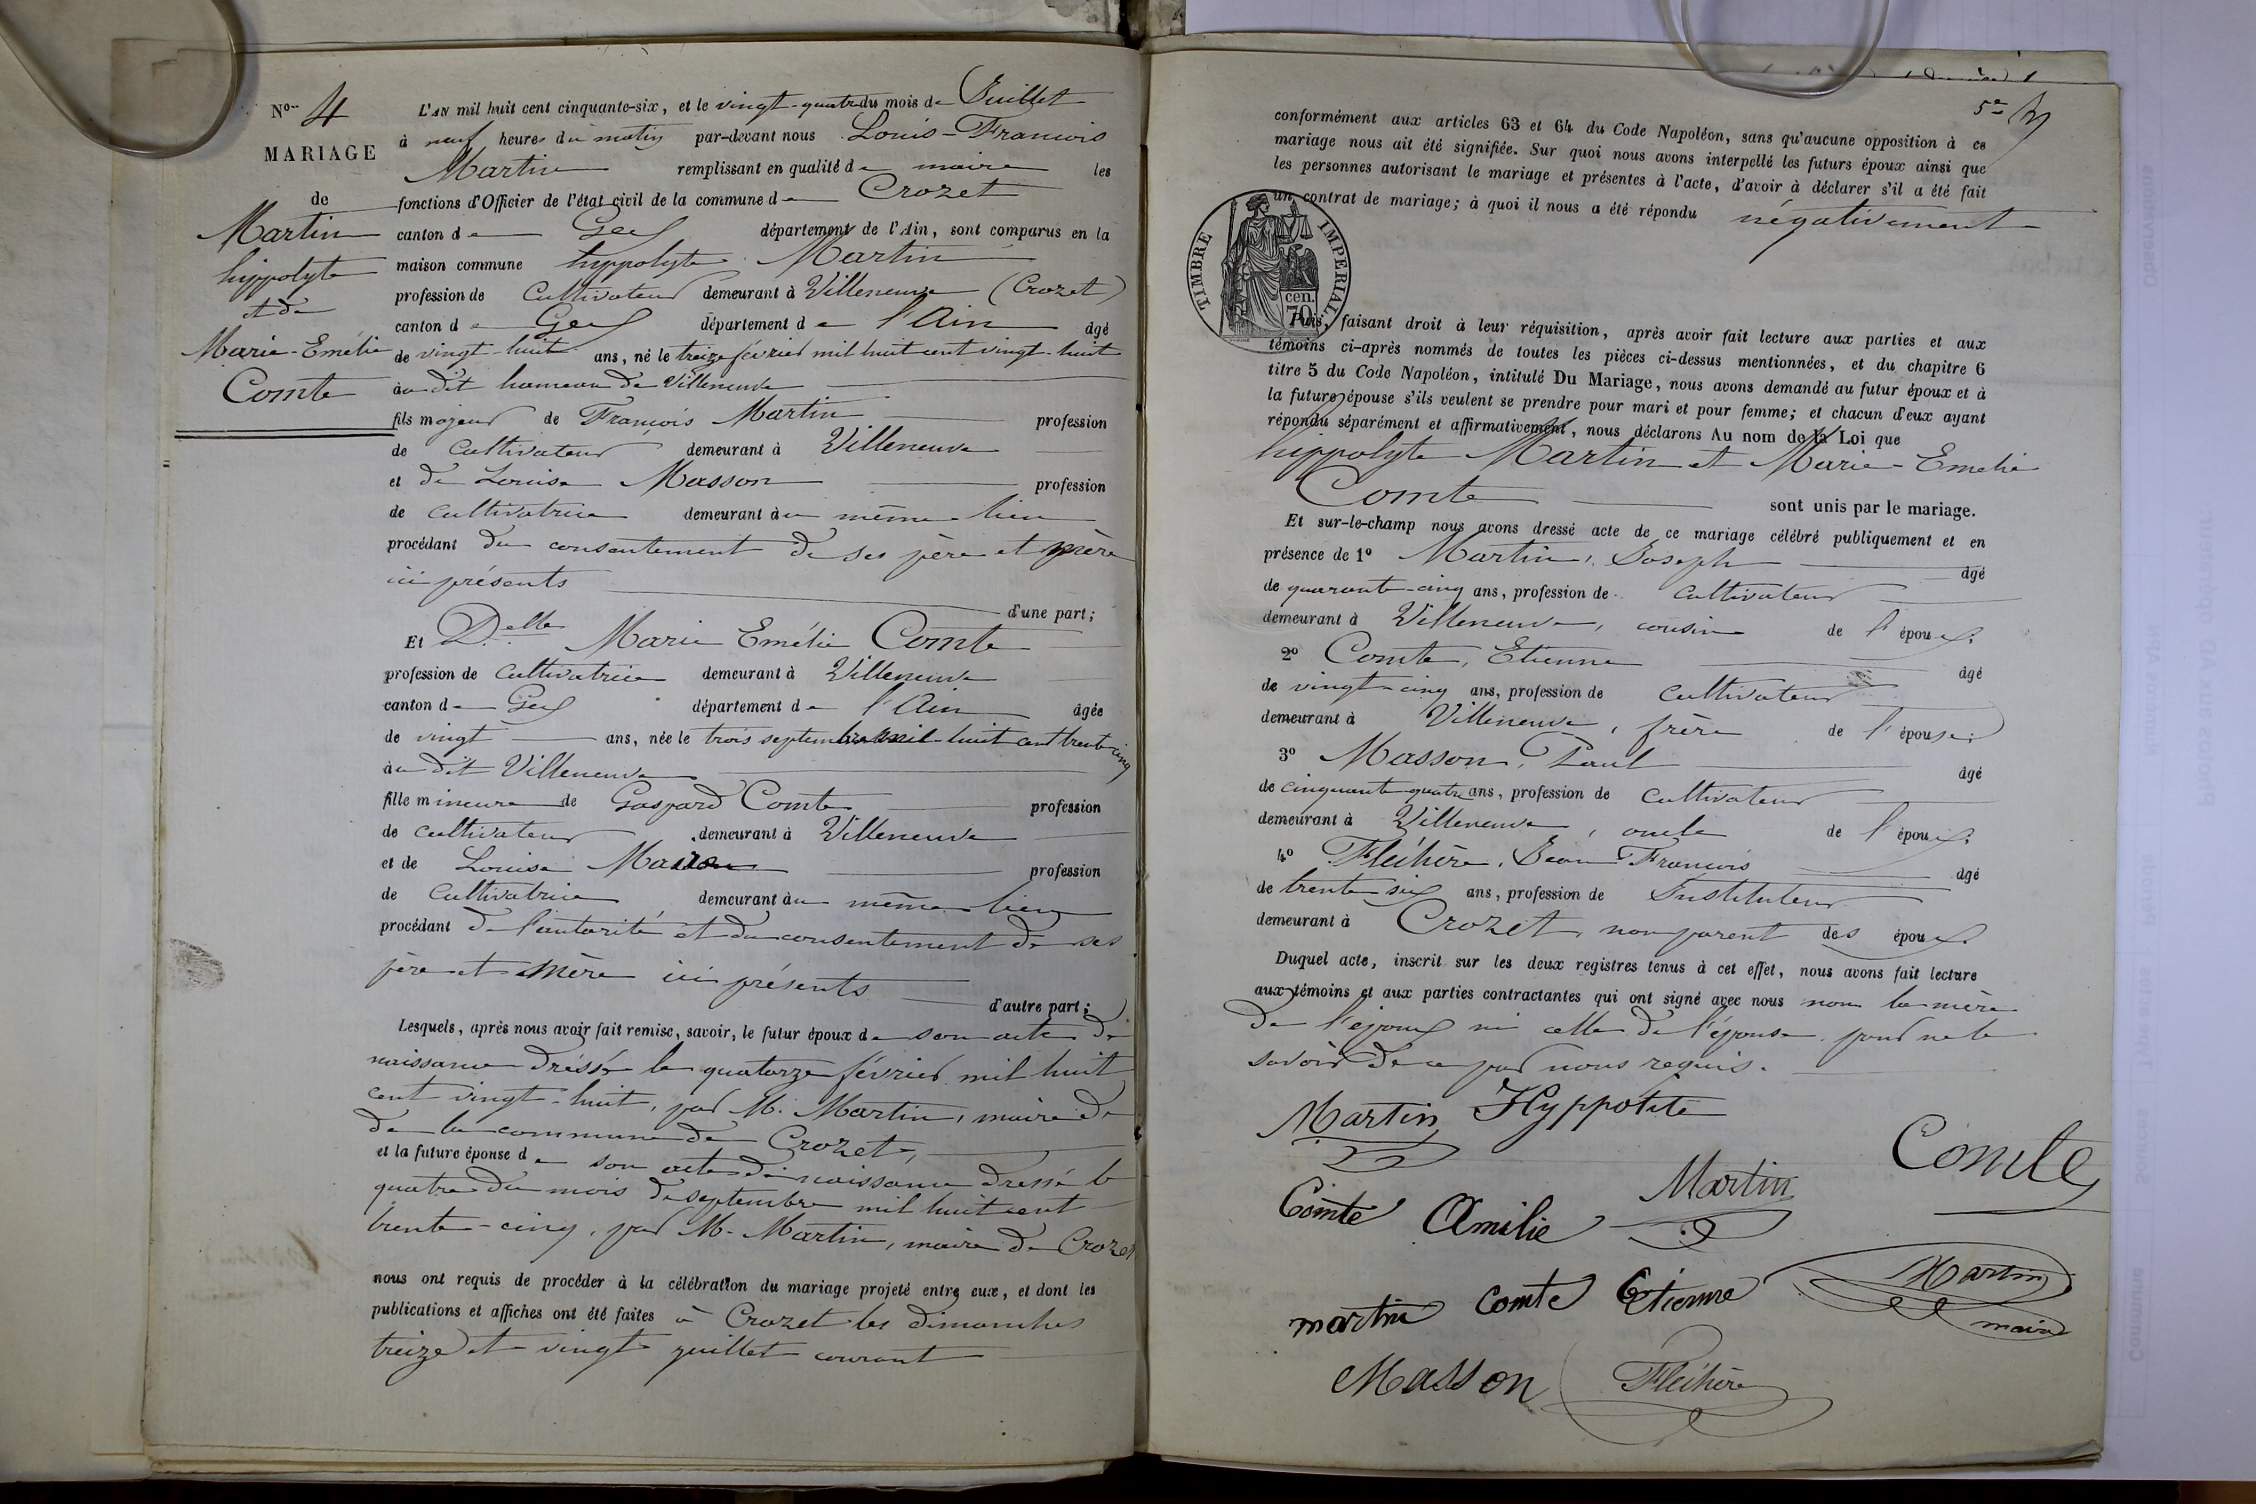 Nos 4
MARIAGE
de
Martin
hippolyte
et de
Marie-Emélie
Comte
L'AN mil huit cent cinquante-six, et le vingt-quatre du mois de Juillet
à neuf heures du matin par-devant nous Louis-François
Martin remplissant en qualité de maire les
fonctions d'Officier de l'état civil de la commune de Crozet
canton de Gex département de l'Ain, sont comparus en la
maison commune hyppolyte Martin
profession de Cultivateur demeurant à Villeneuve (Crozet)
canton de Gex département de l'Ain âgé
de vingt-huit ans, né le treize février mil huit cent vingt-huit
au dit hameau de Villeneuve
fils majeur de François Martin profession
de Cultivateur demeurant à Villeneuve
et de Louise Masson profession
de cultivatrice demeurant au même lieu
procédant du consentement de ses père et mère
ici présents
d'une part;
Et Delle Marie Emélie Comte
profession de cultivatrice demeurant à Villeneuve
canton de Gex département de l'Ain âgée
de vingt ans, née le trois septembre mil-huit cent trente cinq
au dit Villeneuve
fille mineure de Gaspard Comte profession
de cultivateur demeurant à Villeneuve
et de Louise profession
de Cultivatrice demeurant au même lieu
procédant de l'autorité et du consentement de ses
père et mère ici présents
d'autre part;
Lesquels, après nous avoir fait remise, savoir, le futur époux de son acte de
naissance dréssé le quatorze février mil huit
cent vingt-huit, par M. Martin, maire de
de la commune de Crozet,
et la future épouse de son acte de naissance dressé le
quatre du mois de septembre mil huit cent
trente-cinq, par M. Martin, maire de Crozet
nous ont requis de procéder à la célébration du mariage projeté entre eux, et dont les
publications et affiches ont été faites à Crozet les dimanches
treize et vingt juillet courant
5e
conformément aux articles 63 et 64 du Code Napoléon, sans qu'aucune opposition à ce
mariage nous ait été signifiée. Sur quoi nous avons interpellé les futurs époux ainsi que
les personnes autorisant le mariage et présentes à l'acte, d'avoir à déclarer s'il a été fait
un contrat de mariage; à quoi il nous a été répondu négativement
TIMBRE IMPERIAL
70 cen.
Puis, faisant droit à leur réquisition, après avoir fait lecture aux parties et aux
témoins ci-après nommés de toutes les pièces ci-dessus mentionnées, et du chapitre 6
titre 5 du Code Napoléon, intitulé Du Mariage, nous avons demandé au futur époux et à
la future épouse s'ils veulent se prendre pour mari et pour femme; et chacun d'eux ayant
répondu séparément et affirmativement, nous déclarons Au nom de la Loi que
hippolyte Martin et Marie-Emelie
Comte sont unis par le mariage.
Et sur-le-champ nous avons dressé acte de ce mariage célébré publiquement et en
présence de 1o Martin, Joseph âgé
de quarante-cinq ans, profession de Cultivateur
demeurant à Villeneuve, cousin de l'époux.
2o Comte, Etienne âgé
de vingt-cinq ans, profession de cultivateur
demeurant à Villeneuve, frère de l'épouse;
3o Masson, Paul âgé
de cinquante quatre ans, profession de cultivateur
demeurant à Villeneuve, oncle de l'époux.
4o Fléchère, Jean François âgé
de trente six ans, profession de Instituteur
demeurant à Crozet, non parent des époux.
Duquel acte, inscrit sur les deux registres tenus à cet effet, nous avons fait lecture
aux témoins et aux parties contractantes qui ont signé avec nous non la mère
de l'époux ni celle de l'épouse pour ne le
savoir de ce par nous requis.
Martin Hyppolite
Comte
Comte Amilie
Martin
martin comte Etienne
Martin
maire
Masson
Fléchère